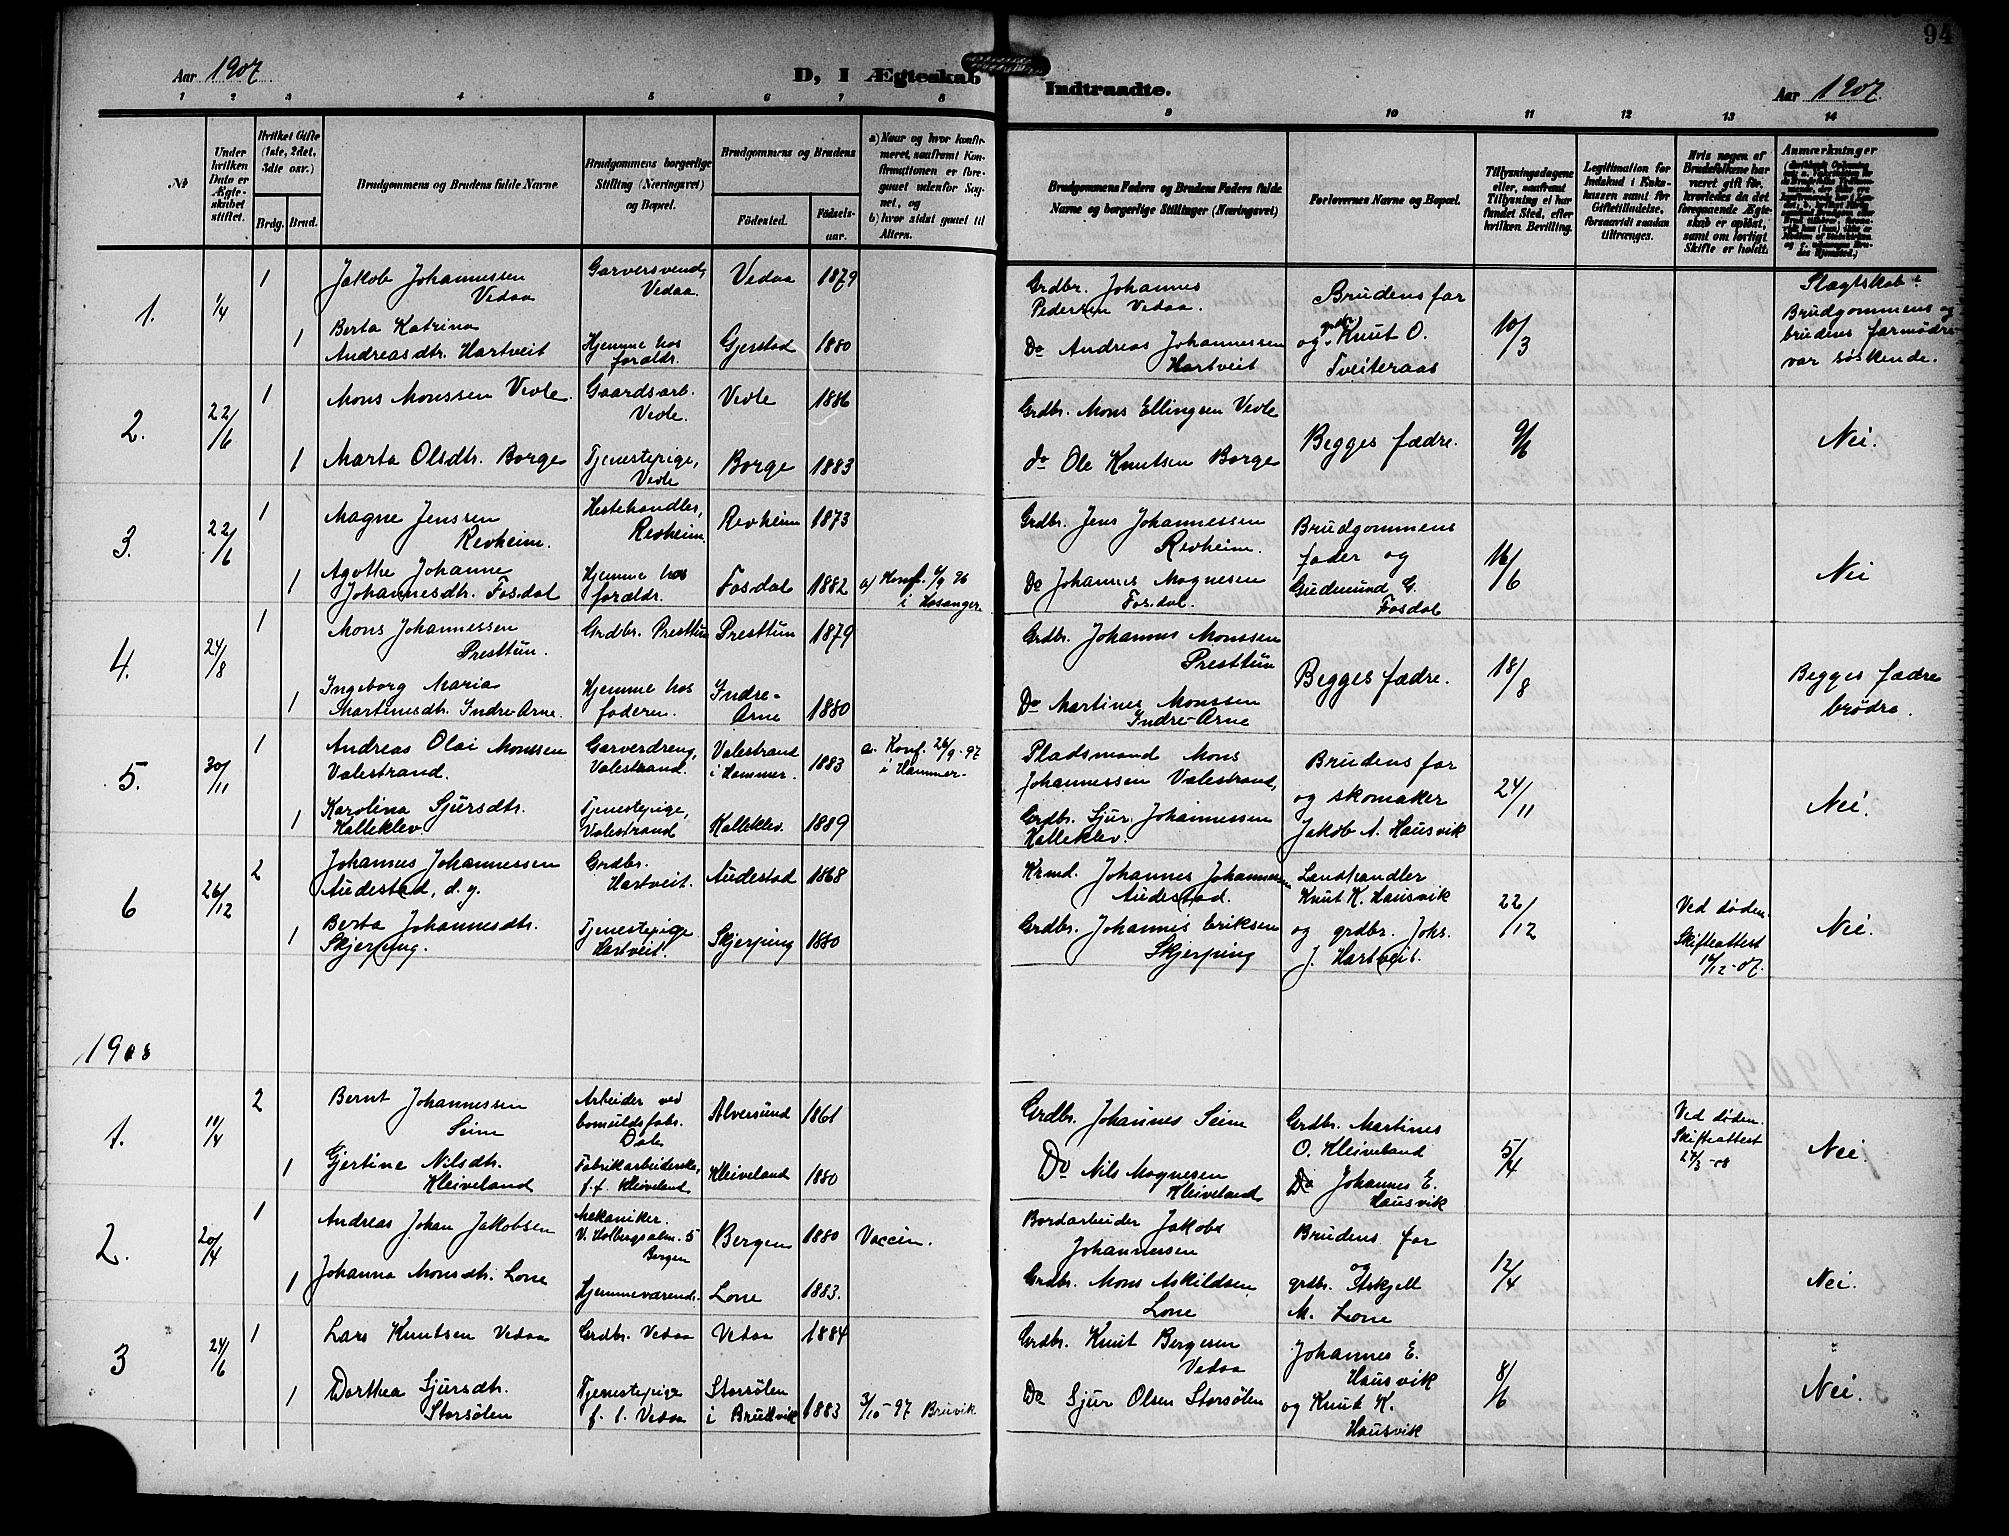 94
Aar 1907
D, I Ægteskab
Indtraadte.
Aar 1907.
1 2 3 4 5 6 7 8
9 10 11 12 13 14
No
Under hvilken Dato er Ægteskabet stiftet.
Hvilket Gifte (1ste, 2det, 3die osv.)
Brdg. Brud.
Brudgommens og Brudens fulde Navne.
Brudgommens borgerlige Stilling (Næringsvei) og Bopæl.
Brudgommens og Brudens
Fødested.
Fødsels-aar.
a) Naar og hvor konfirmeret, saafremt Konfirmationen er foregaaet udenfor Sognet, og
b) hvor sidst gaaet til Alters.
Brudgommens Faders og Brudens Faders fulde Navne og borgerlige Stillinger (Næringsvei)
Forlovernes Navne og Bopæl.
Tillysningsdagene eller, saafremt Tillysning ei har fundet Sted, efter hvilken Bevilling.
Legitimation for Indskud i Enkekassen samt for Giftetilladelse, forsaavidt saadan tiltrænges.
Hvis nogen af Brudefolkene har været gift før, hvorledes da det foregaaende Ægteskab er opløst, samt om lovligt Skifte er holdt.
Anmærkninger
1. 1/4
1 Jakob Johannessen Vedaa
Garversvend, Vedaa.
Vedaa 1879
Grdbr. Johannes Pedersen Vedaa.
1 Berta Katrina Andreasdtr. Hartveit
Hjemme hos foraldr.
Gjerstad 1880
Do Andreas Johannessen Hartveit
Brudens far og grdbr. Knut O. Tveiteraas
10/3
Slagtskab: Brudgommens og brudens farmødre var søskende.
2. 22/6
1 Mons Monssen Vevle.
Gaardsarb. Vevle.
Vevle 1886
Grdbr. Mons Ellingsen Vevle
1 Marta Olsdtr. Borge
Tjenestepige, Vevle
Borge 1883
do Ole Knutsen Borge
Begges fædre.
9/6
Nei.
3. 22/6
1 Magne Jenssen Revheim.
Hestehandler, Revheim.
Revheim 1873
Grdbr. Jens Johannessen Revheim.
1 Agothe Johanne Johannesdtr. Fosdal
Hjemme hos foraldr.
Fosdal 1882
a) Konf. 6/9 96 i Hosanger
Do Johannes Magnesen Fosdal.
Brudgommens fader og Gudmund G. Fosdal
16/6
Nei
4. 24/8
1 Mons Johannessen Presttun.
Grdbr. Presttun
Presttun 1879
Grdbr. Johannes Monssen Presttun
1 Ingeborg Maria Martinesdtr. Indre-Arne.
Hjemme hos faderen.
Indre-Arne 1880
Do Martines Monssen Indre-Arne
Begges fædre.
18/8
Begges fædre brødre.
5. 30/11
1 Andreas Olai Monssen Valestrand.
Garverdreng, Valestrand.
Valestrand i Hammer. 1883
a. Konf. 26/9-97 i Hammer.
Pladsmand Mons Johannessen Valestrand,
1 Karolina Sjursdtr. Kalleklev.
Tjenestepige, Valestrand
Kalleklev. 1889
Grdbr. Sjur Johannessen Kalleklev.
Brudens far og skomaker Jakob A. Hausvik
24/11
Nei.
6 26/12
2 Johannes Johannessen Audestad, d.y.
Grdbr. Hartveit.
Audestad 1868
Krmd. Johannes Johannessen Audestad.
1 Berta Johannesdtr. Skjerping.
Tjenestepige Hartveit.
Skjerping 1880
Grdbr. Johannes Eriksen Skjerping
Landhandler Knut K. Hausvik og grdbr. Johs. J. Hartveit.
22/12
Ved døden. Skifteattest 16/12-07.
Nei.
1908
1. 10/4
2 Bernt Johannessen Seim
Arbeider ved bomuldsfabr. Dale
Alversund 1861
Grdbr. Johannes Seim
1 Gjertine Nilsdtr. Kleiveland
Fabrikarbeiderske, f.f. Kleiveland
Kleiveland 1880
Do Nils Magnesen Kleiveland
Grdbr. Martines O. Kleiveland
Do Johannes E. Hausvik
5/4
Ved døden. Skifteattest 27/3-08
Nei.
2. 20/4
1 Andreas Johan Jakobsen
Mekaniker. V. Holbergsalm. 5 Bergen
Bergen 1880
Vaccin.
Bordarbeider Jakob Johannessen
1 Johanna Monsdtr. Lone
Hjemmeværend.
Lone 1883.
Grdbr. Mons Askildsen Lone
Brudens far og grdbr. Askjell M. Lone
12/4
Nei.
3 24/6
1 Lars Knutsen Vedaa
Grdbr. Vedaa
Vedaa 1884
Grdbr. Knut Bergesen Vedaa
1 Dorthea Sjursdtr. Storsølen
Tjenestepige f. t. Vedaa
Storsølen i Brudvik 1883
3/10-97 Bruvik
Do Sjur Olsen Storsølen
Johannes E. Hausvik og Knut K. Hausvik
8/6
Nei.